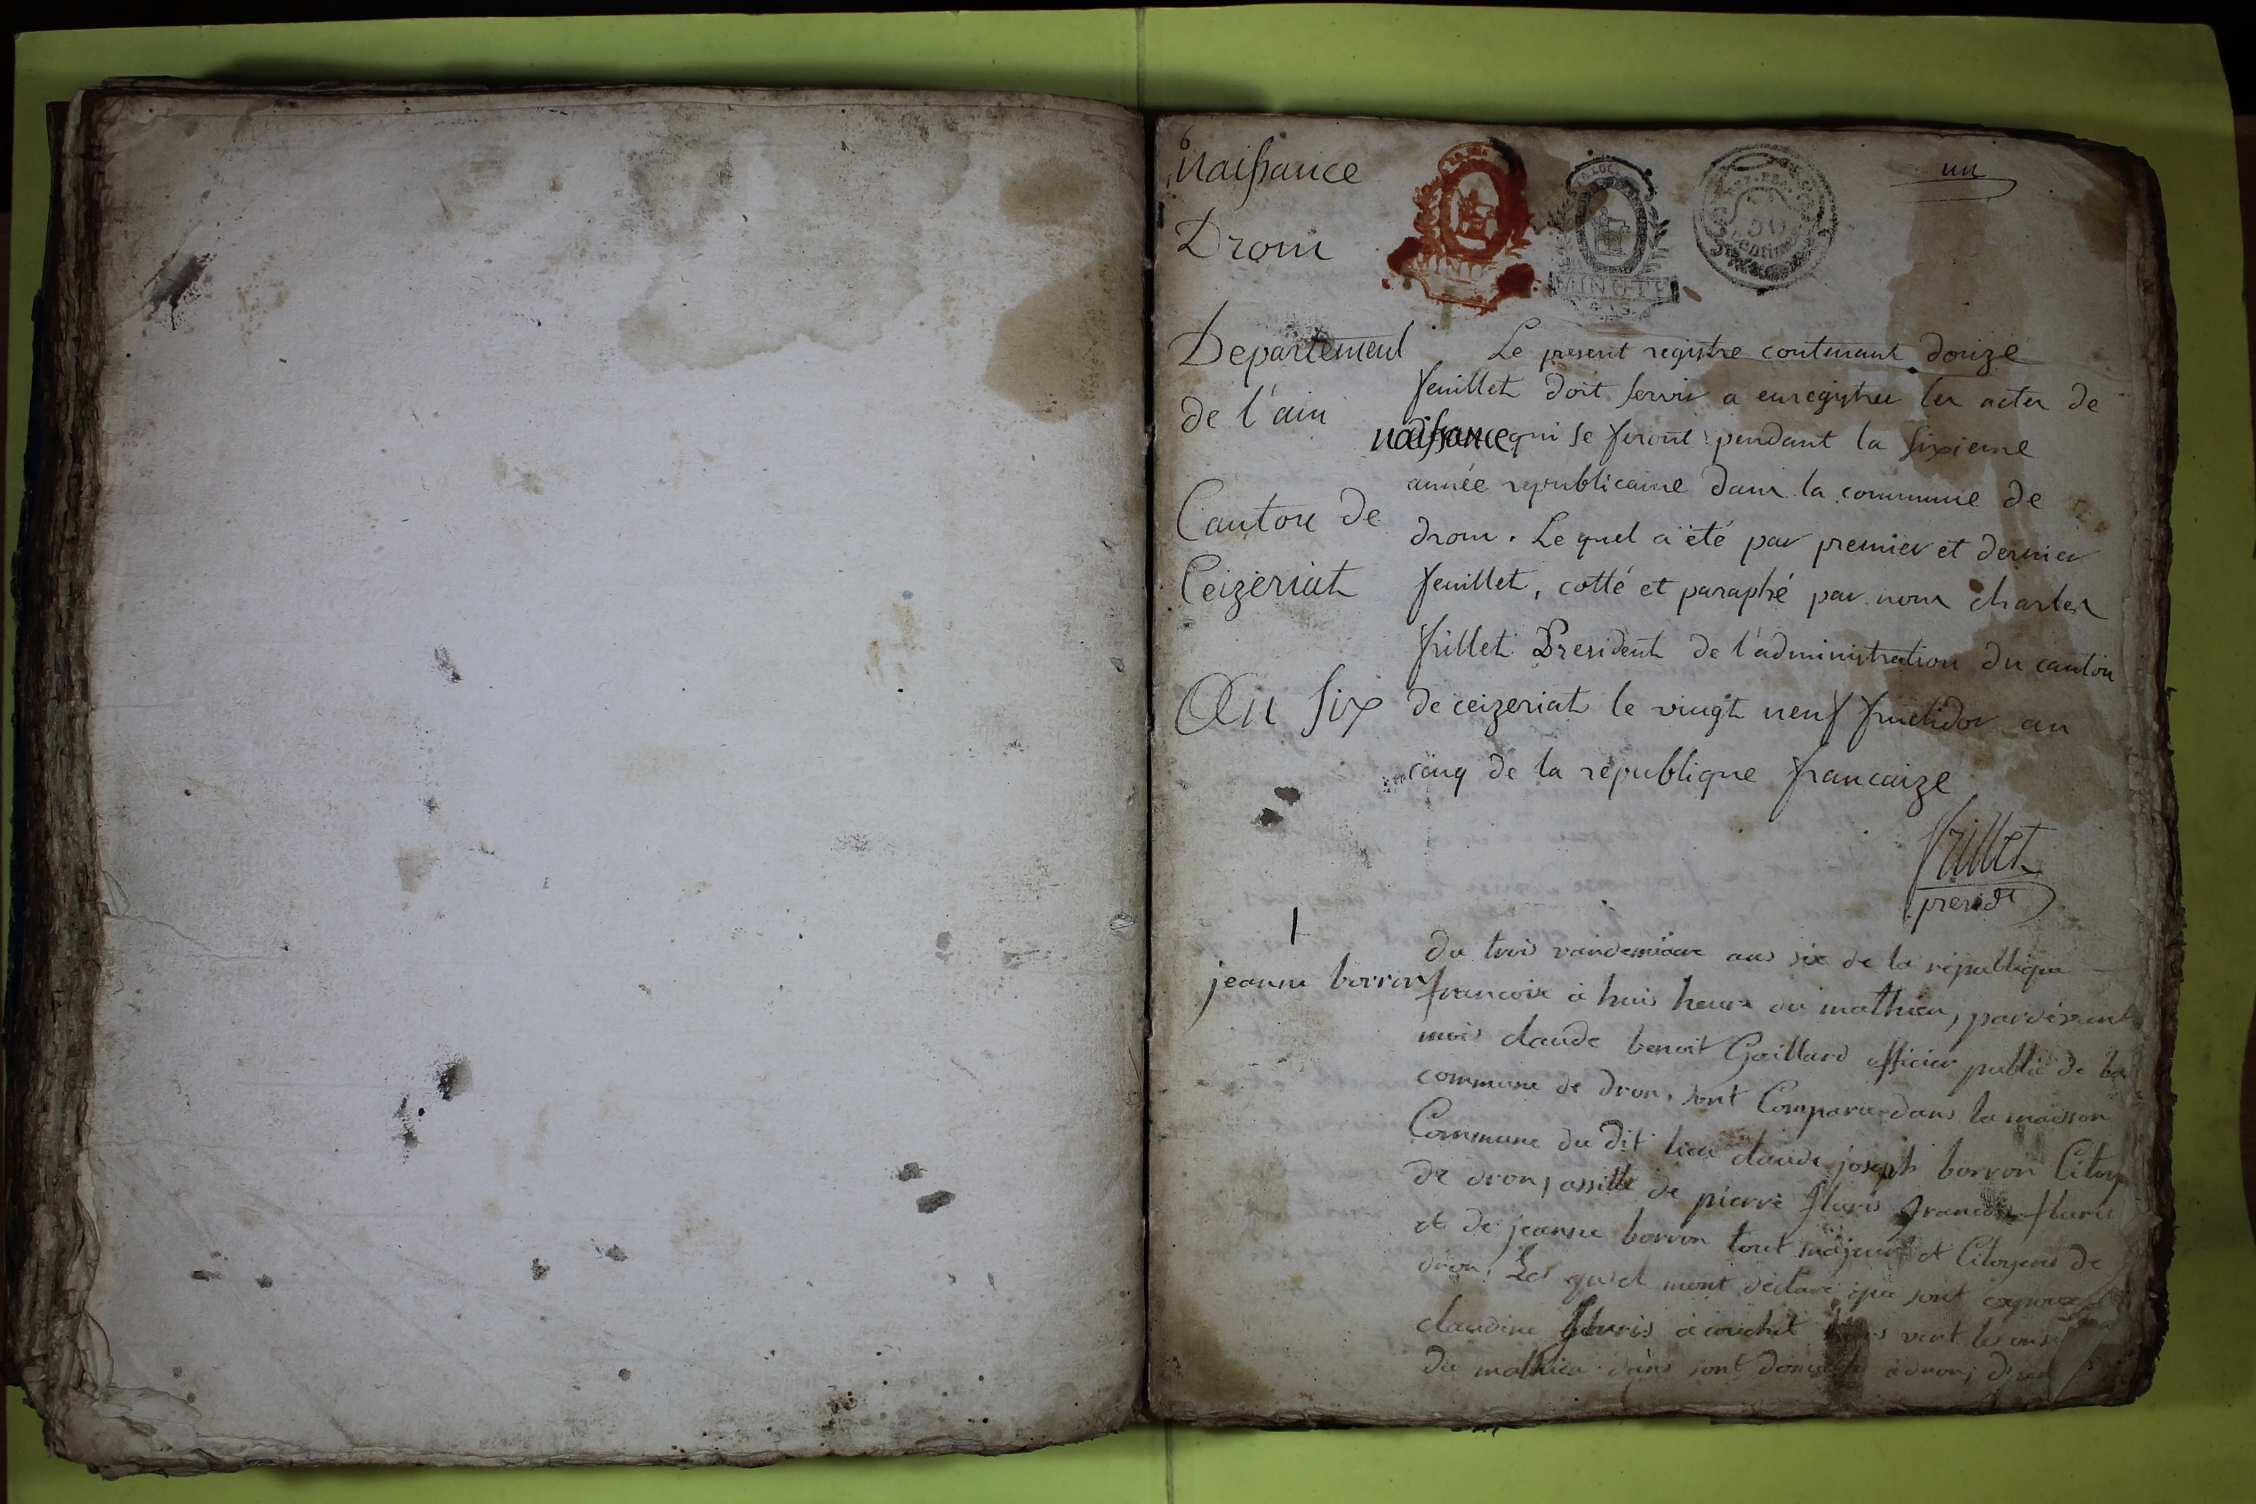 6
un
Naissance
Drom
MINUTE
50
Centimes
Departement
de l'ain
Canton de
Ceizeriat
An Six
Le present registre contenant douze
feuillet doit servir a enregistrer les actes de
naissance qui se feront pendant la sixieme
année republicaine dans la commune de
drom. Le quel a été par premier et dernier
feuillet, cotté et paraphé par nous charles
frillet President de l'administration du canton
de ceizeriat le vingt neuf fructidor an
cinq de la republique francaize
frillet
presidt
1
jeanne borron
du trois vandemiaire ans six de la république
francoise à huis heure du mathien, pardevant
mois claude benoit Gaillard officier public de la
commune de dron, sont Comparu dans la maison
Commune du dit lieu claude joseph borron Citoy
de dron, assisté de pierre fluris francois fluris
et de jeanne borron tout majeur et Citoyens de
dron, Les quel mont déclaré que sont
claudine fluris acouchit vert les
du mathien dans sont domicile à dron,